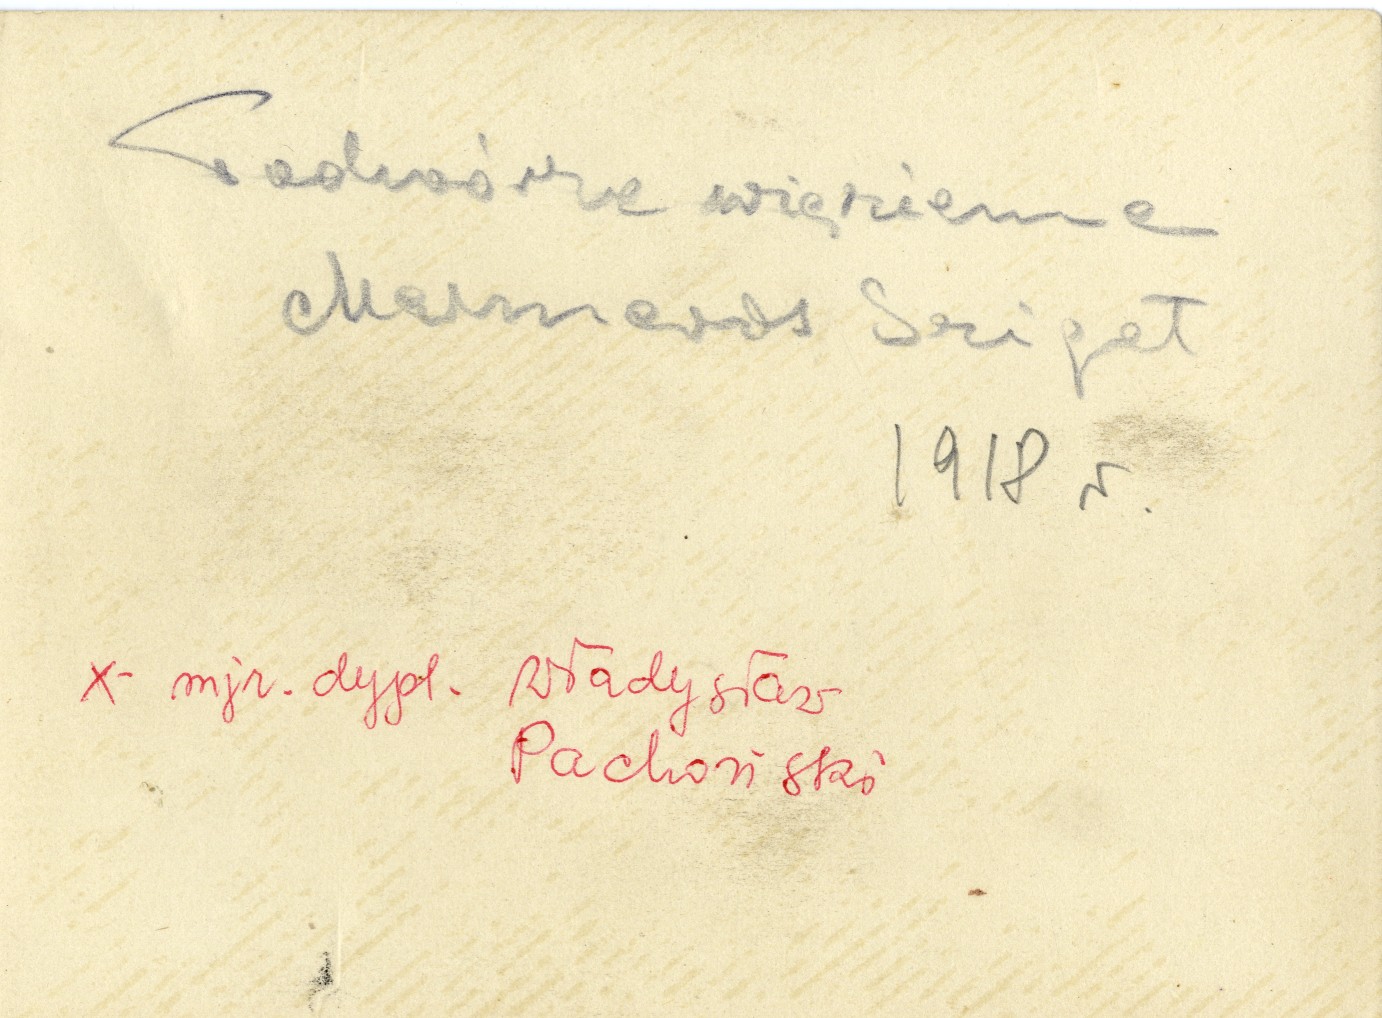 Podwórze więzienne
Marmaros Sziget
1918 r.
X- mjr. dypl. Władysław
Pachoński